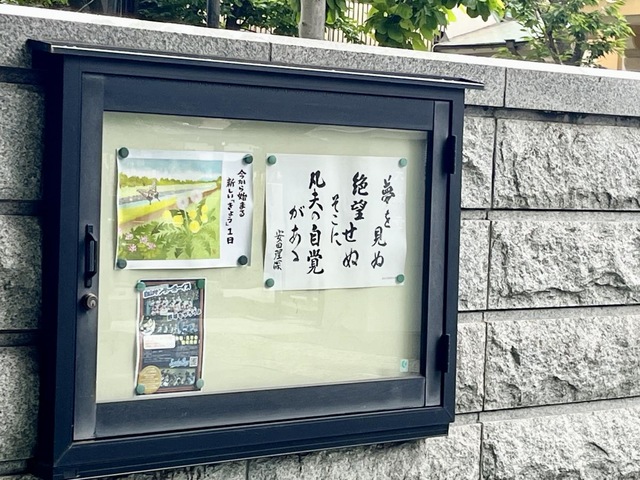 夢を見ぬ
絶望せぬ
そこに
凡夫の自覚
がある
安田理深
今から始まる
新しい「きょう」1日